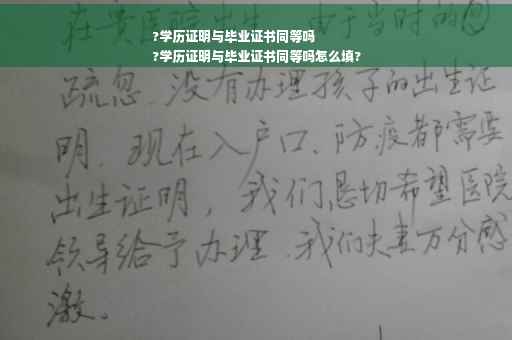 在贵医院出生。由于当时的
?学历证明与毕业证书同等吗
?学历证明与毕业证书同等吗怎么填?
疏忽.没有办理孩子的出生证
明.现在入户口、防疫都需要
出生证明，我们恳切希望医院
领导给予办理.我们夫妻万分感
激。